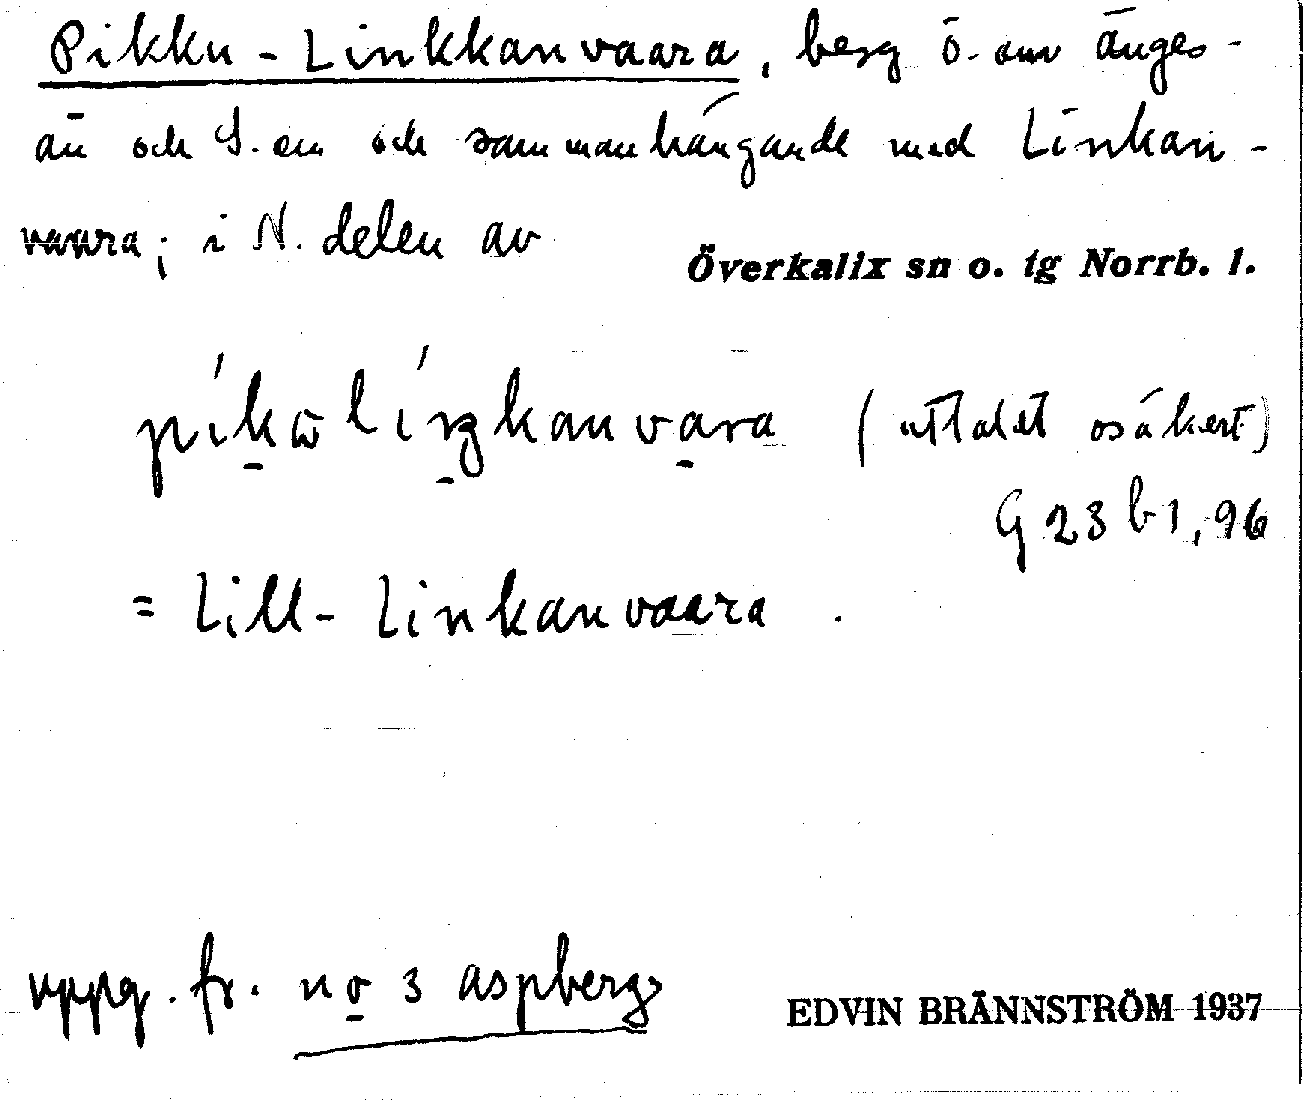 Pikku-Linkkanvaara, berg ö. om Änges-
ån och S. om och sammanhängande med Linkan-
vaara; i N. delen av
Överkalix sn o. tg Norrb. l.
(uttalet osäkert)
G 23 b 1, 96
= Lill-Linkanvaara.
uppg. fr. no 3 aspberg
EDVIN BRÄNNSTRÖM 1937